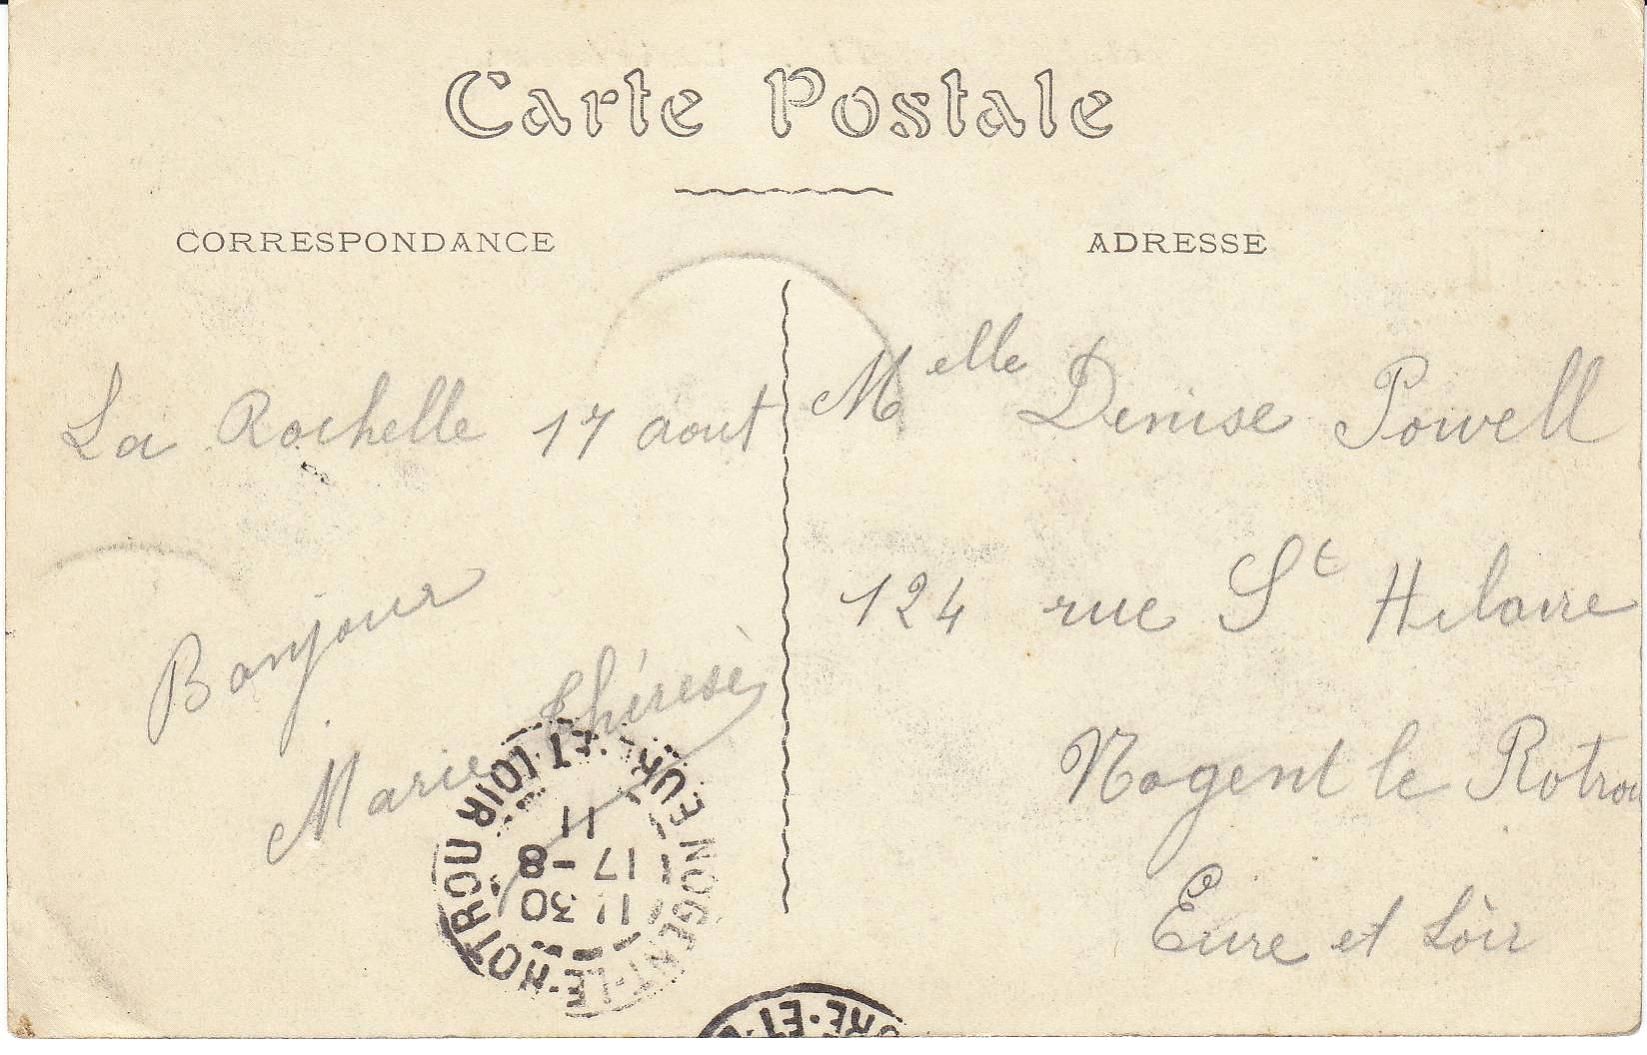 Carte Postale
CORRESPONDANCE
ADRESSE
La Rochelle 17 aout
Bonjour
Marie Thérèse
Melle Denise Powell
124 rue St Hilaire
Nogent le Rotrou
Eure et Loir
NOGENT-LE-ROTROU
EURE ET LOIR
11 30
17 - 8
11
RE-ET-